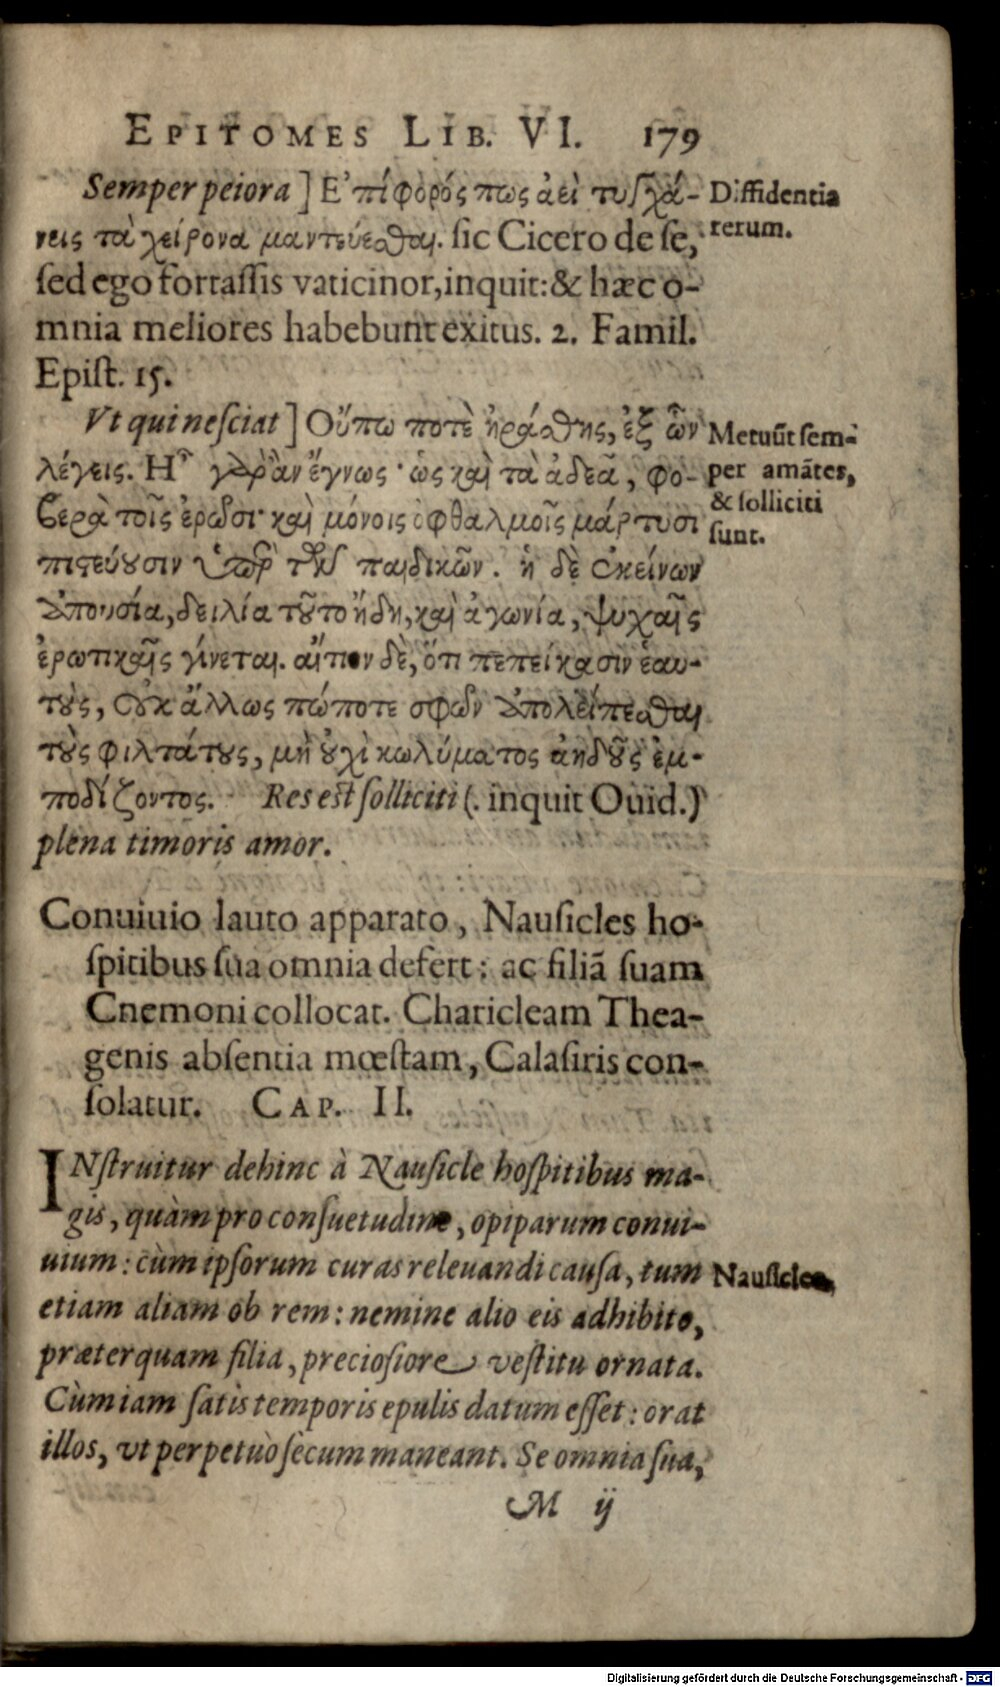 EPITOMES LIB. VI. 179
Semper peiora] Ε᾿πίφορός πως ἀεὶ τυγχά-
νεις τὰ χείρονα μαντεύεσθαι. sic Cicero de se,
sed ego fortassis vaticinor, inquit: & hæc o-
mnia meliores habebunt exitus. 2. Famil.
Epist. 15.
Diffidentia
rerum.
Vt qui nesciat] Οὔπω ποτὲ ἠράσθης, ἐξ ὧν
λέγεις. Η῏ γὰρ ἂν ἔγνως· ὡς καὶ τὰ ἀδεᾶ, φο-
βερὰ τοῖς ἐρῶσι· καὶ μόνοις ὀφθαλμοῖς μάρτυσι
πιστεύουσιν ὑπὲρ τῶν παιδικῶν. ἡ δὲ ἐκείνων
ἀπουσία, δειλία τοῦτο ἤδη, καὶ ἀγωνία, ψυχαῖς
ἐρωτικαῖς γίνεται. αἴτιον δὲ, ὅτι πεπείκασιν ἑαυ-
τοὺς, οὐκ ἄλλως πώποτε σφῶν ἀπολείπεσθαι
τοὺς φιλτάτους, μὴ οὐχὶ κωλύματος ἀηδοῦς ἐμ-
ποδίζοντος. Res est solliciti (. inquit Ouid.)
plena timoris amor.
Metuūt sem-
per amātes,
& solliciti
sunt.
Conuiuio lauto apparato, Nausicles ho-
spitibus sua omnia defert: ac filiā suam
Cnemoni collocat. Charicleam Thea-
genis absentia mœstam, Calasiris con-
solatur. CAP. II.
INstruitur dehinc à Nausicle hospitibus ma-
gis, quàm pro consuetudine, opiparum conui-
uium: cùm ipsorum curas releuandi causa, tum
etiam aliam ob rem: nemine alio eis adhibito,
præterquam filia, preciosiore vestitu ornata.
Cùm iam satis temporis epulis datum esset: orat
illos, vt perpetuò secum maneant. Se omnia sua,
Nausicles
M ij
Digitalisierung gefördert durch die Deutsche Forschungsgemeinschaft - DFG